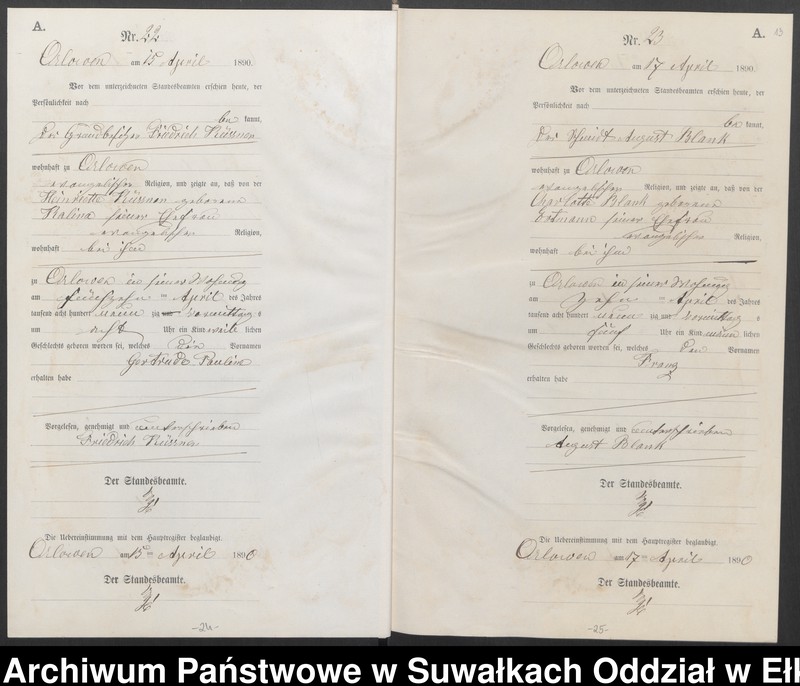 A.
Nr. 22
Orlowen am 15 April 1890.
Vor dem unterzeichneten Standesbeamten erschien heute, der
Persönlichkeit nach
be kannt,
der Grundbesitzer Friedrich
wohnhaft zu Orlowen
evangelischer Religion, und zeigte an, daß von der
Henriette geborene
Kalina seiner Ehefrau
evangelischer Religion,
wohnhaft bei ihm
zu Orlowen in seiner Wohnung
am fünfzehn ten April des Jahres
tausend acht hundert neunzig vormittags
um acht Uhr ein Kind weib lichen
Geschlechts geboren worden sei, welches die Vornamen
Gertrude Pauline
erhalten habe
Vorgelesen, genehmigt und unterschrieben
Friedrich
Der Standesbeamte.
Die Uebereinstimmung mit dem Hauptregister beglaubigt.
Orlowen am 15 ten April 1890
Der Standesbeamte.
-24-
A.
13
Nr. 23
Orlowen am 17 April 1890
Vor dem unterzeichneten Standesbeamten erschien heute, der
Persönlichkeit nach
be kannt,
der Schmidt August Blank
wohnhaft zu Orlowen
evangelischer Religion, und zeigte an, daß von der
Charlotte Blank geborene
Ortmann seiner Ehefrau
evangelischer Religion,
wohnhaft bei ihm
zu Orlowen in seiner Wohnung
am zehn ten April des Jahres
tausend acht hundert neunzig vormittags
um fünf Uhr ein Kind männ lichen
Geschlechts geboren worden sei, welches den Vornamen
Franz
erhalten habe
Vorgelesen, genehmigt und unterschrieben
August Blank
Der Standesbeamte.
Die Uebereinstimmung mit dem Hauptregister beglaubigt.
Orlowen am 17 ten April 1890
Der Standesbeamte.
-25-
Archiwum Państwowe w Suwałkach Oddział w Ełk